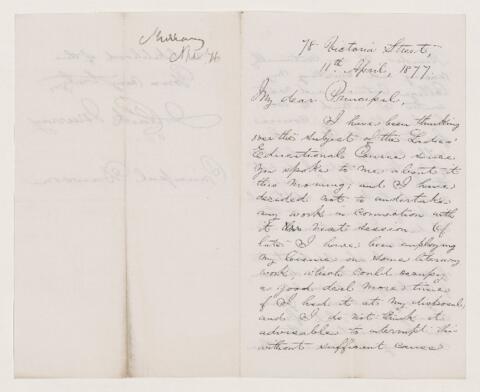 Murray
78 Victoria Street,
11th April, 1877.
My dear Principal,
I have been thinking
over the subject of the Ladies'
Educational Course since
you spoke to me about it
this morning, and I have
decided not to undertake
any work in connection with
it next session. Of
late I have been employing
my leisure on some literary
work, which could occupy
a good deal more time
if I had it at my disposal,
and I do not think it
advisable to interrupt this
without sufficient cause